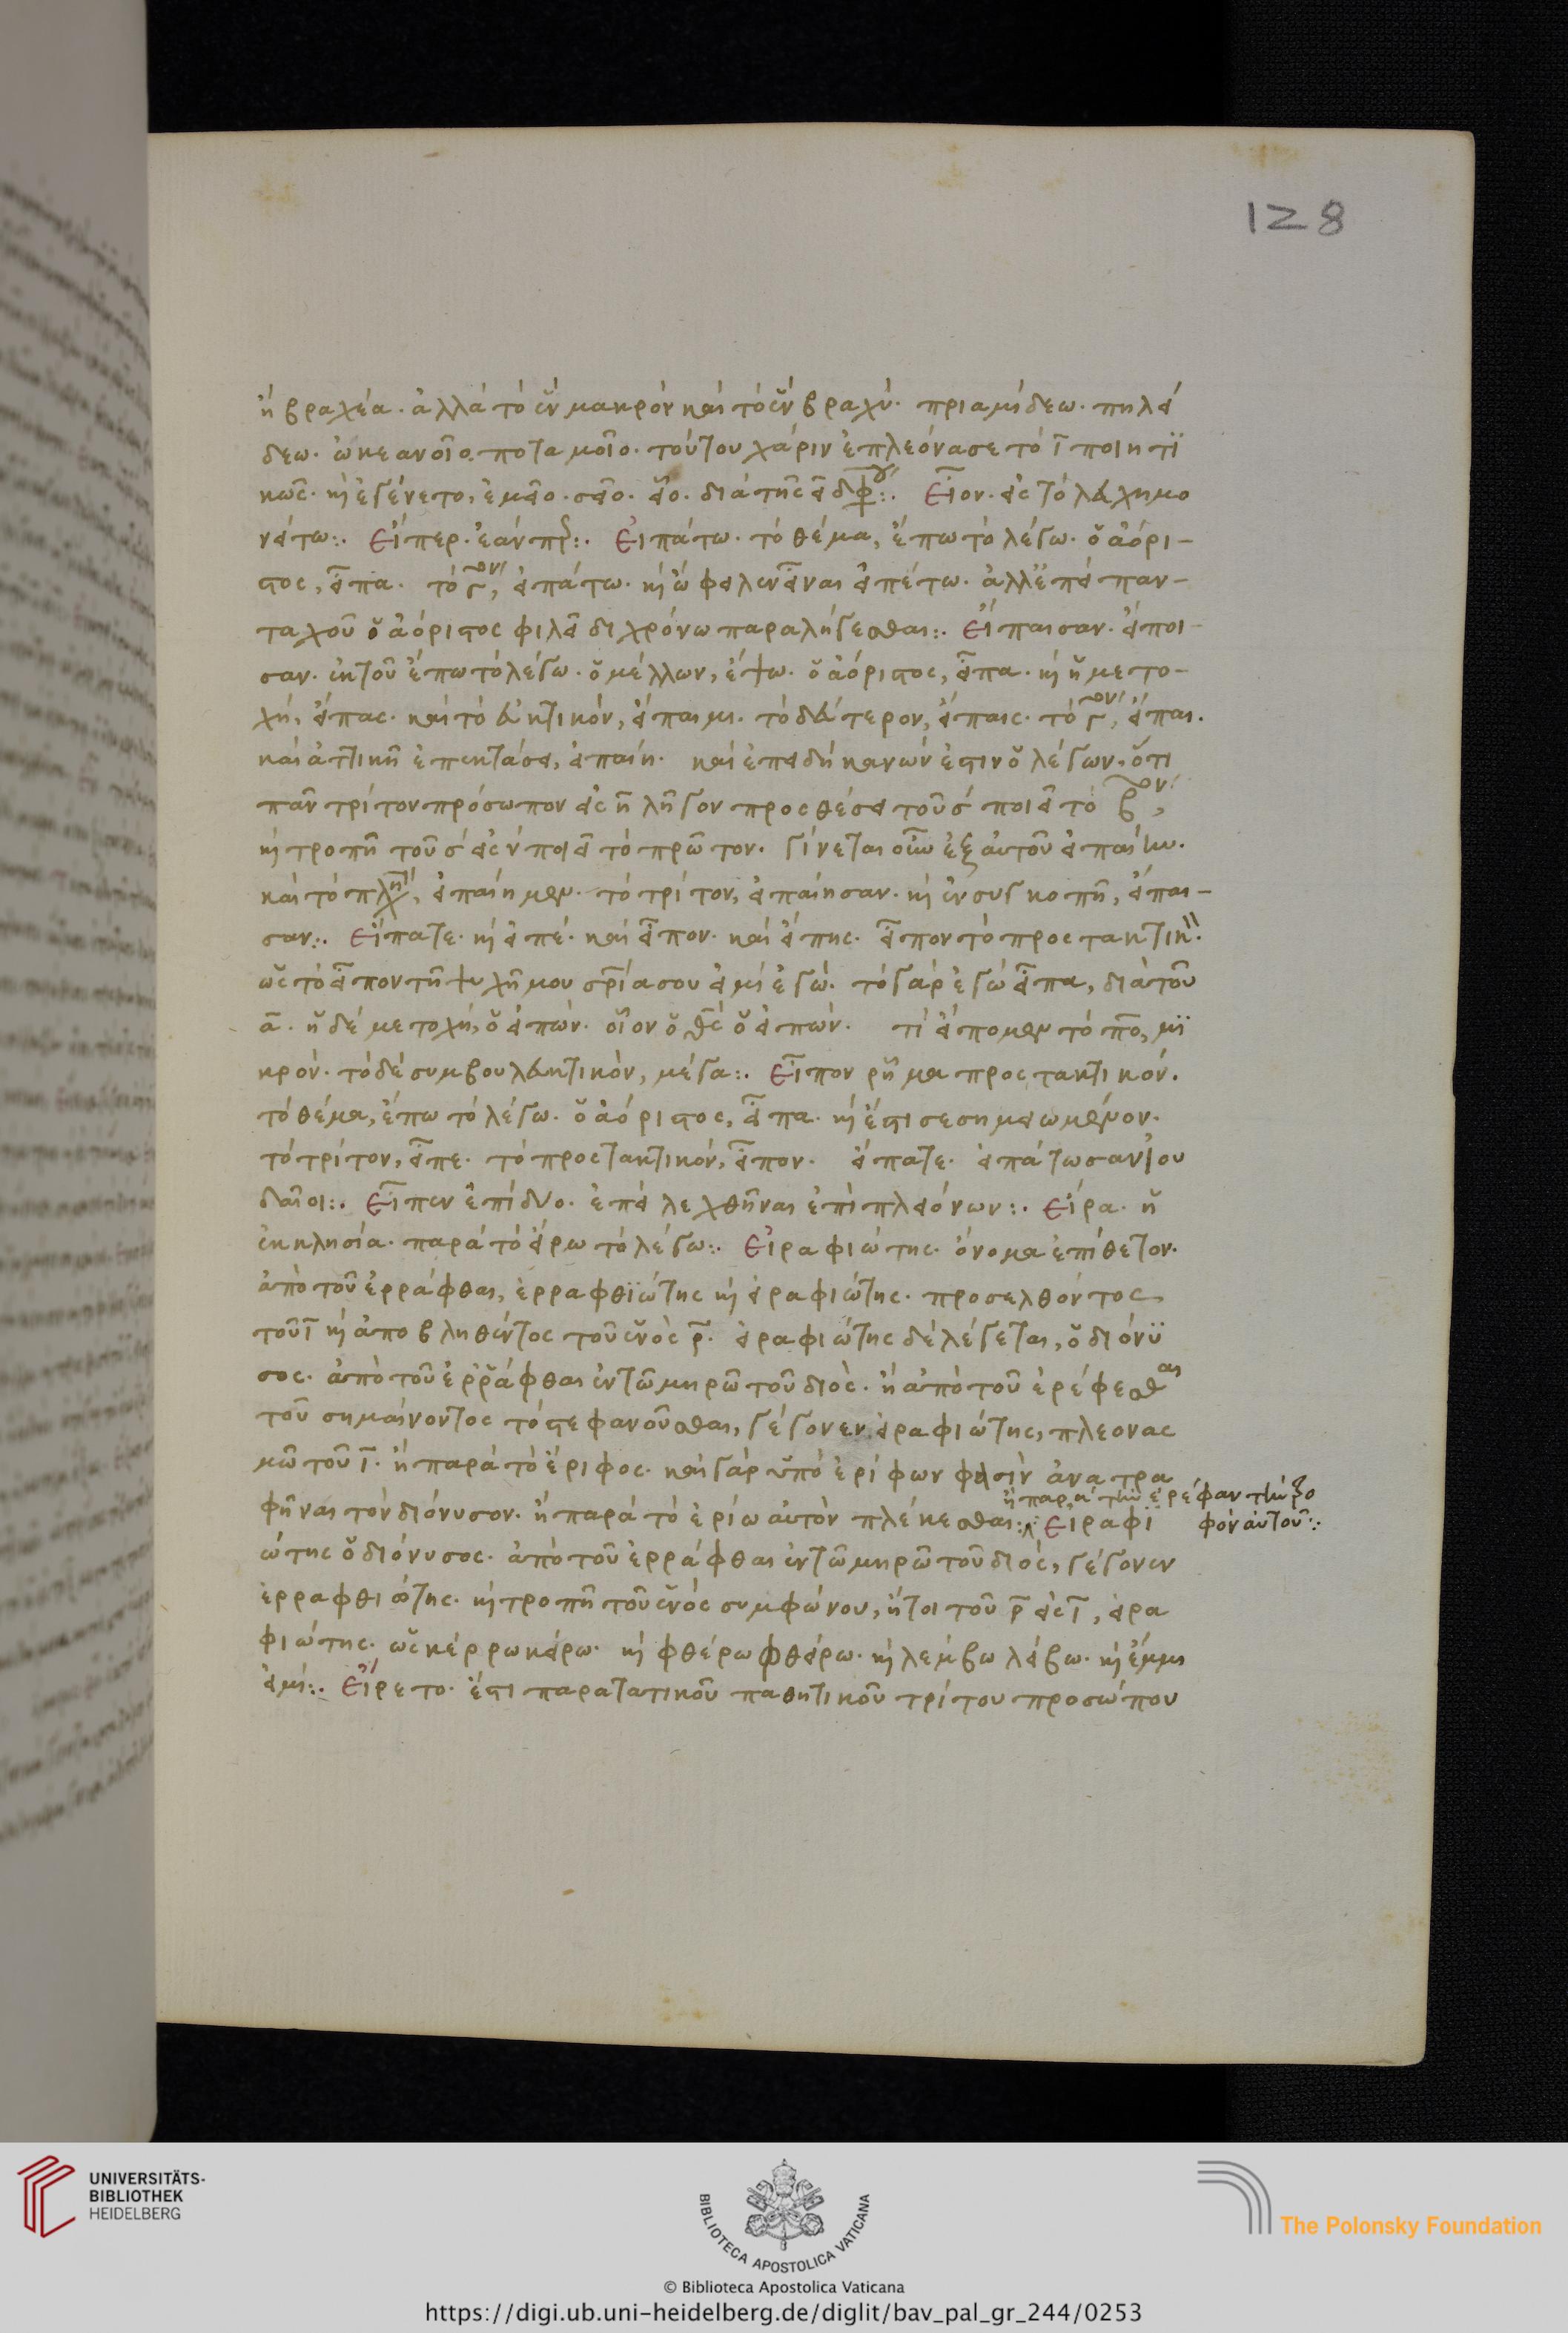 128
ἢ βραχέα. ἀλλὰ τὸ ἓν μακρὸν καὶ τὸ ἓν βραχύ. πριαμίδεω. πηλεί
δεω. ὠκεανοῖο. ποταμοῖο. τούτου χάριν ἐπλεόνασε τὸ ῑ ποιητι
κῶς. κὶ ἐγένετο, ἐμεῖο. σεῖο. εἷο. διὰ τῆς ει διφ:. Εἶον. εἰς τὸ λαχημο
νείτω:. Εἴπερ. ἐάνπερ:. Εἰπάτω. τὸ θέμα, ἔπω τὸ λέγω. ὁ ἀόρι-
στος, εἶπα. τὸ γον, εἰπάτω. κὶ ὤφειλεν εἶναι εἰπέτω. ἀλλ' ἐπεὶ παν-
ταχοῦ ὁ ἀόριστος φιλεῖ διχρόνω παραλήγεσθαι:. Εἴπαισαν. εἴποι-
σαν. ἐκ τοῦ ἔπω τὸ λέγω. ὁ μέλλων, ἔψω. ὁ ἀόριστος, εἶπα. κὶ ἡ μετο-
χή, εἴπας. καὶ τὸ εὐκτικόν, εἴπαιμι. τὸ δεύτερον, εἴπαις. τὸ γον, εἴπαι.
καὶ ἀττικῆ ἐπεκτάσει, εἰπαίη. καὶ ἐπειδὴ κανών ἐστιν ὁ λέγων, ὅτι
πᾶν τρίτον πρόσωπον εἰς η λῆγον προσθέσει τοῦ σ ποιεῖ τὸ βον,
κὶ τροπῆ τοῦ σ εἰς ν ποιεῖ τὸ πρῶτον. γίνεται οὖν ἐξ αὐτοῦ εἰπαίην.
καὶ τὸ πληθ, εἰπαίημεν. τὸ τρίτον, εἰπαίησαν. κὶ ἐν συγκοπῆ, εἴπαι-
σαν:. Εἴπατε. κὶ εἰπέ. καὶ εἶπον. καὶ εἴπης. εἶπον τὸ προστακτικ.
ὡς τὸ εἶπον τῆ ψυχῆ μου σρία σου εἰμὶ ἐγώ. τὸ γὰρ ἐγὼ εἶπα, διὰ τοῦ
ᾱ. ἡ δὲ μετοχή, ὁ εἰπών. οἷον ὁ θς ὁ εἰπών. τί εἴπομεν τὸ πο, μι
κρόν. τὸ δὲ συμβουλευτικὸν, μέγα:. Εἶπον ρῆμα προστακτικόν.
τὸ θέμα, ἔπω τὸ λέγω. ὁ ἀόριστος, εἶπα. κὶ ἔστι σεσημειωμένον.
τὸ τρίτον, εἶπε. τὸ προστακτικόν, εἶπον. εἴπατε. εἰπάτωσαν ἰου
δαῖοι:. Εἶπεν ἐπὶ δύο. ἐπὶ λεχθῆναι ἐπὶ πλειόνων:. Εἴρα. ἡ
ἐκκλησία. παρὰ τὸ εἴρω τὸ λέγω:. Εἰραφιώτης. ὄνομα ἐπίθετον.
ἀπὸ τοῦ ἐρράφθαι, ἐρραφθιώτης κὶ εἰραφιώτης. προσελθόντος
τοῦ ῑ κὶ ἀποβληθέντος τοῦ ἑνὸς ρ̄. εἰραφιώτης δὲ λέγεται, ὁ διόνυ
σος. ἀπὸ τοῦ ἐρράφθαι ἐν τῶ μηρῶ τοῦ διὸς. ἢ ἀπὸ τοῦ ἐρέφεσθαι
τοῦ σημαίνοντος τὸ στεφανοῦσθαι, γέγονεν εἰραφιώτης, πλεονας
μῶ τοῦ ῑ. ἢ παρὰ τὸ ἔριφος. καὶ γὰρ ὑπὸ ἐρίφων φησὶν ἀνατρα
φῆναι τὸν διόνυσον. ἢ παρὰ τὸ ἐρίω αὐτὸν πλέκεσθαι:. Εἰραφι
ἢ παρὰ τὴν ἐρέφαν τὴν ζο
φόν αὐτοῦ:.
ώτης ὁ διόνυσος. ἀπὸ τοῦ ἐρράφθαι ἐν τῶ μηρῶ τοῦ διός, γέγονεν
ἐρραφθιώτης. κὶ τροπῆ τοῦ ἑνὸς συμφώνου, ἤτοι τοῦ ρ̄ εἰς ῑ, εἰρα
φιώτης. ὡς κέρρω κείρω. κὶ φθέρω φθείρω. κὶ λέμβω λείβω. κὶ ἔμμι
εἰμί:. Εἴρετο. ἔστι παρατατικοῦ παθητικοῦ τρίτου προσώπου
UNIVERSITÄTS-
BIBLIOTHEK
HEIDELBERG
BIBLIOTECA APOSTOLICA VATICANA
The Polonsky Foundation
© Biblioteca Apostolica Vaticana
https://digi.ub.uni-heidelberg.de/diglit/bav_pal_gr_244/0253